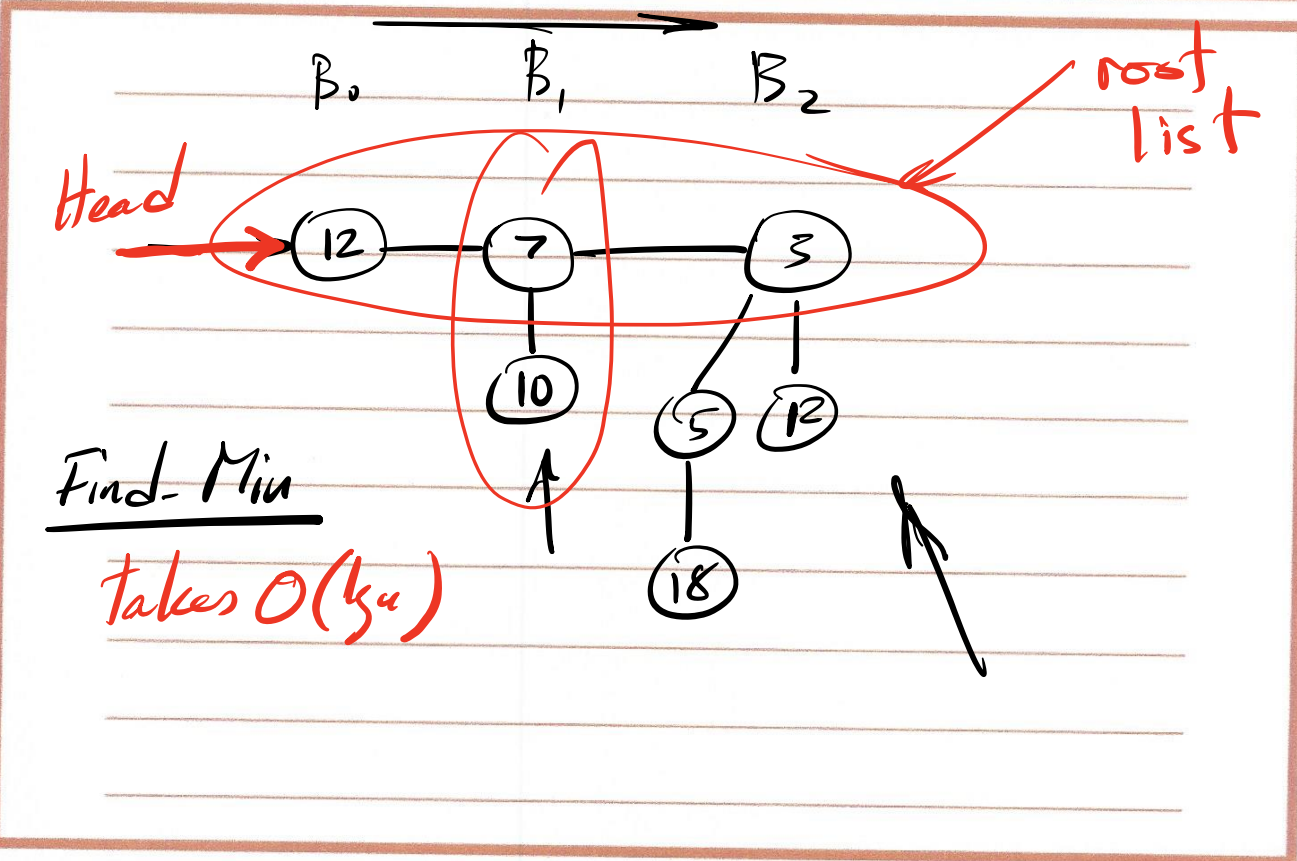 B₀ B₁ B₂
root
list
Head
12 7 3
10
5 12
Find-Min
18
takes O(lgn)